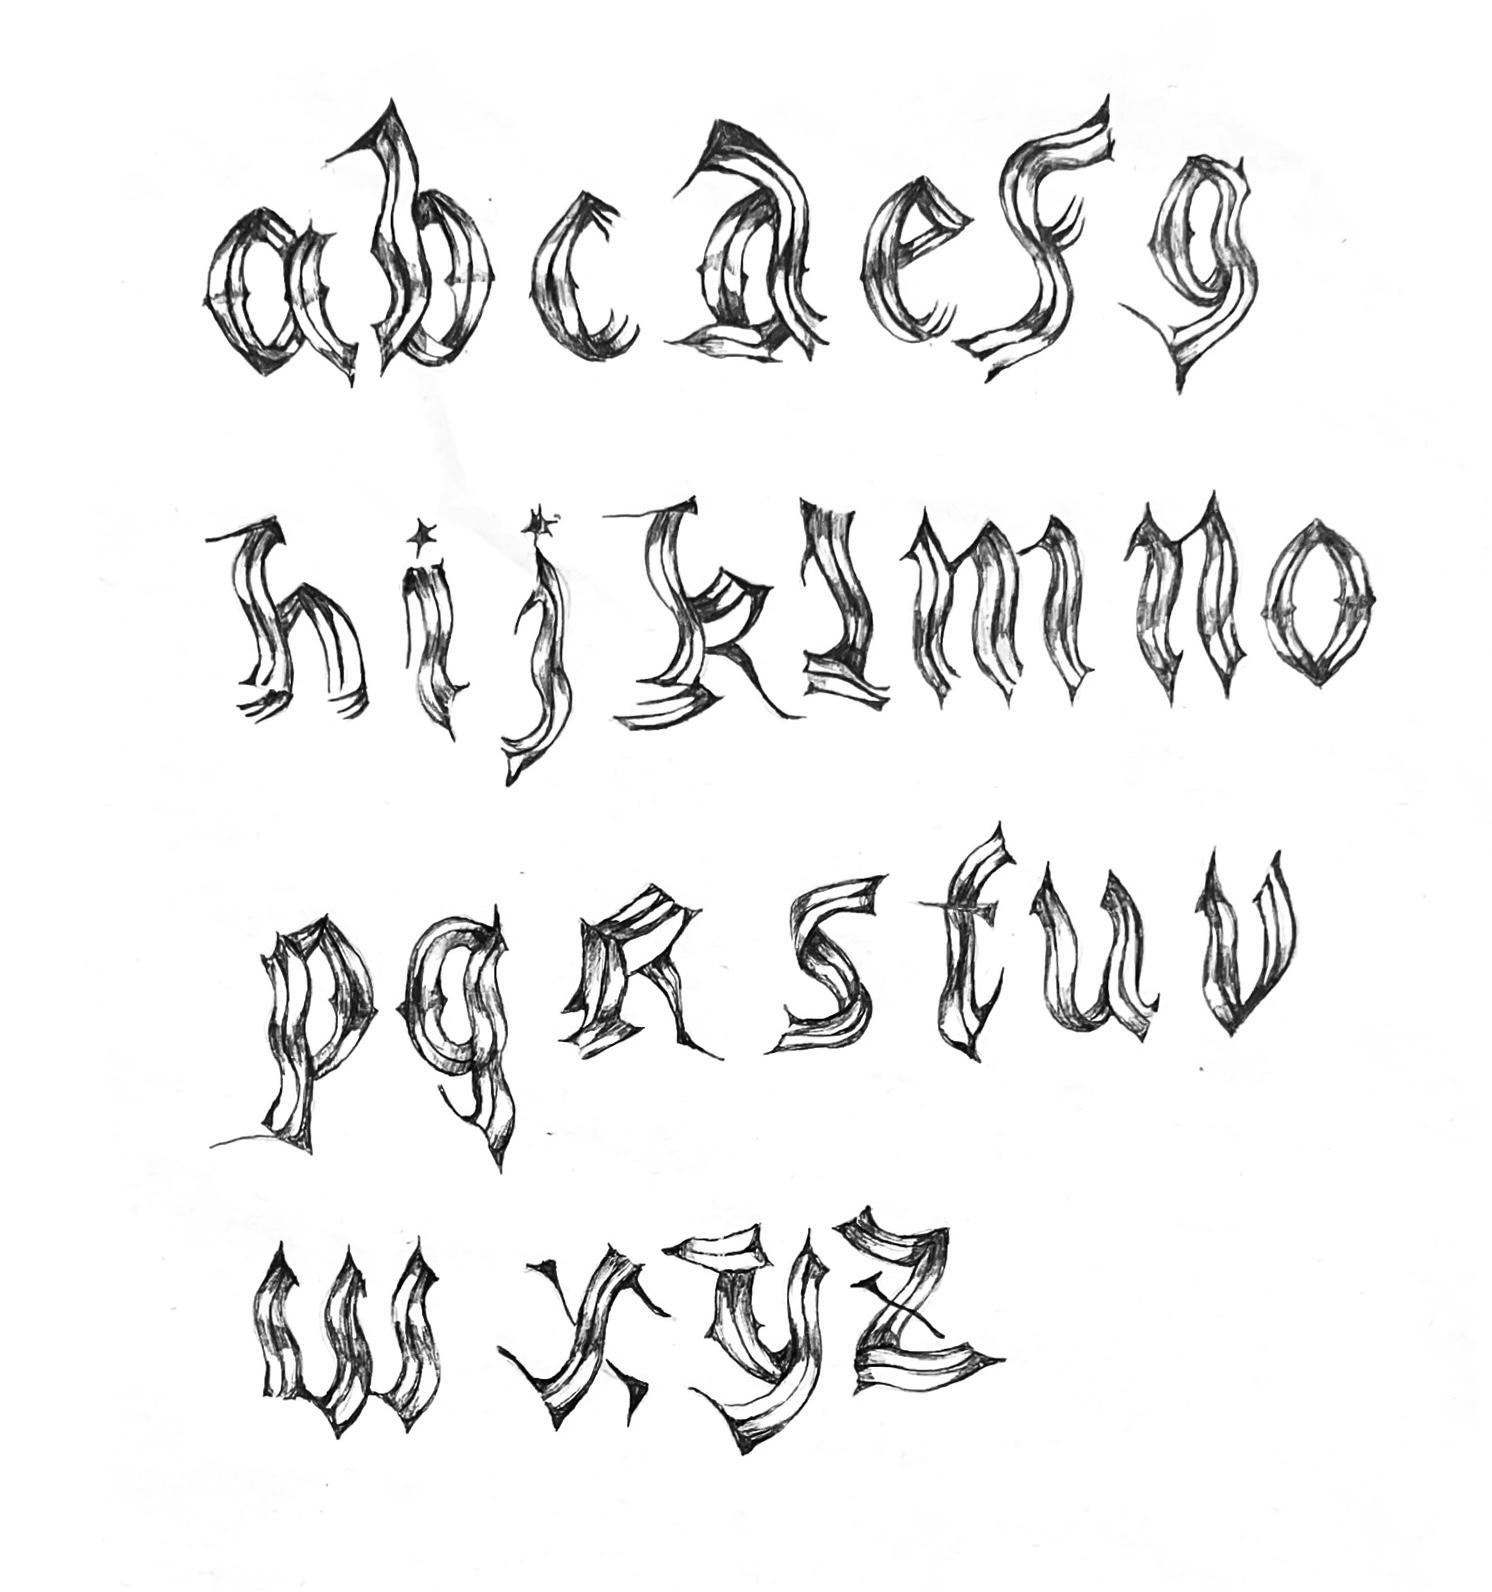 abcdefg
hijklmno
pqrstuv
wxyz